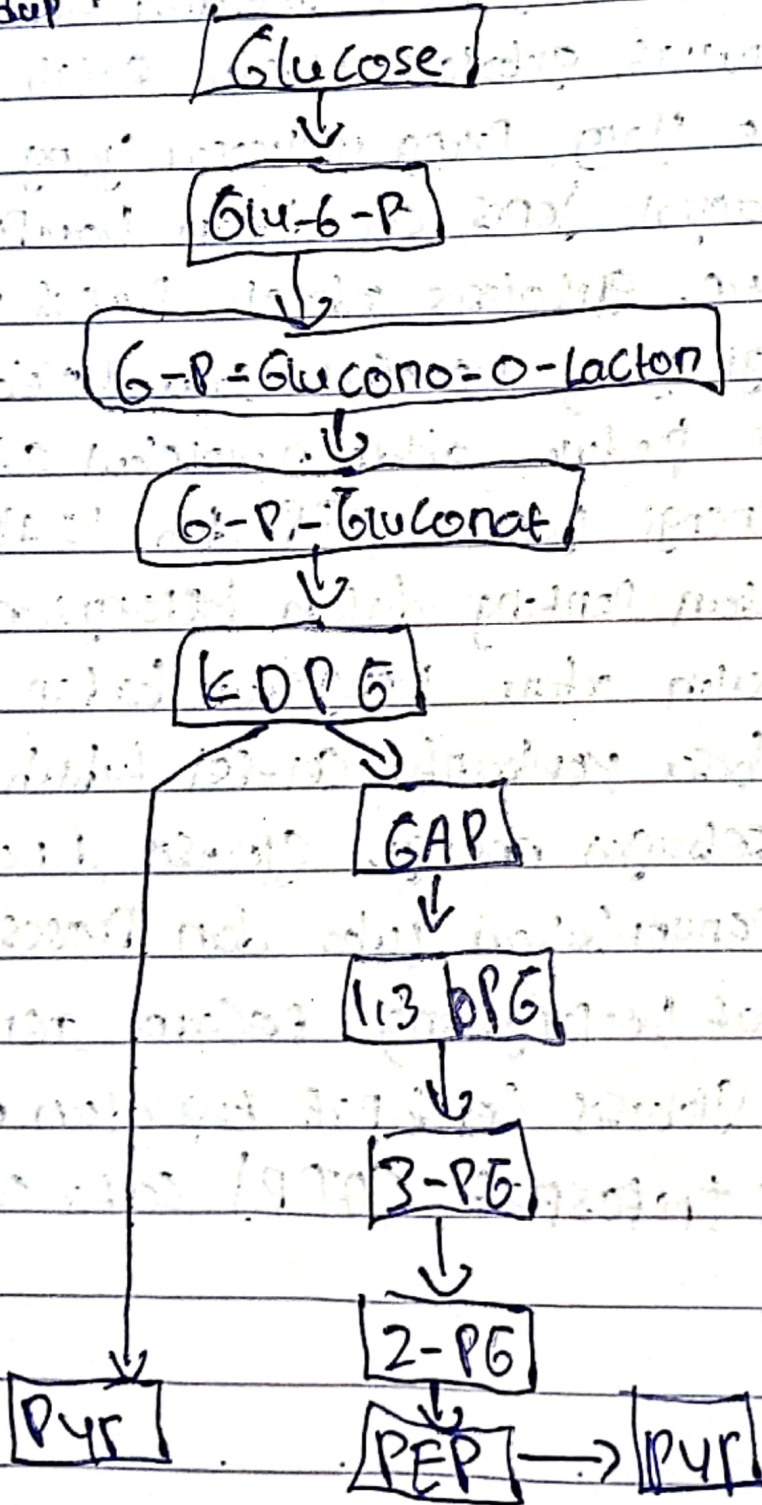 Glucose
Glu-6-P
6-P-Glucono-O-Lacton
6-P-Gluconat
KDPG
GAP
1,3 DPG
3-PG
2-PG
Pyr
PEP
Pyr